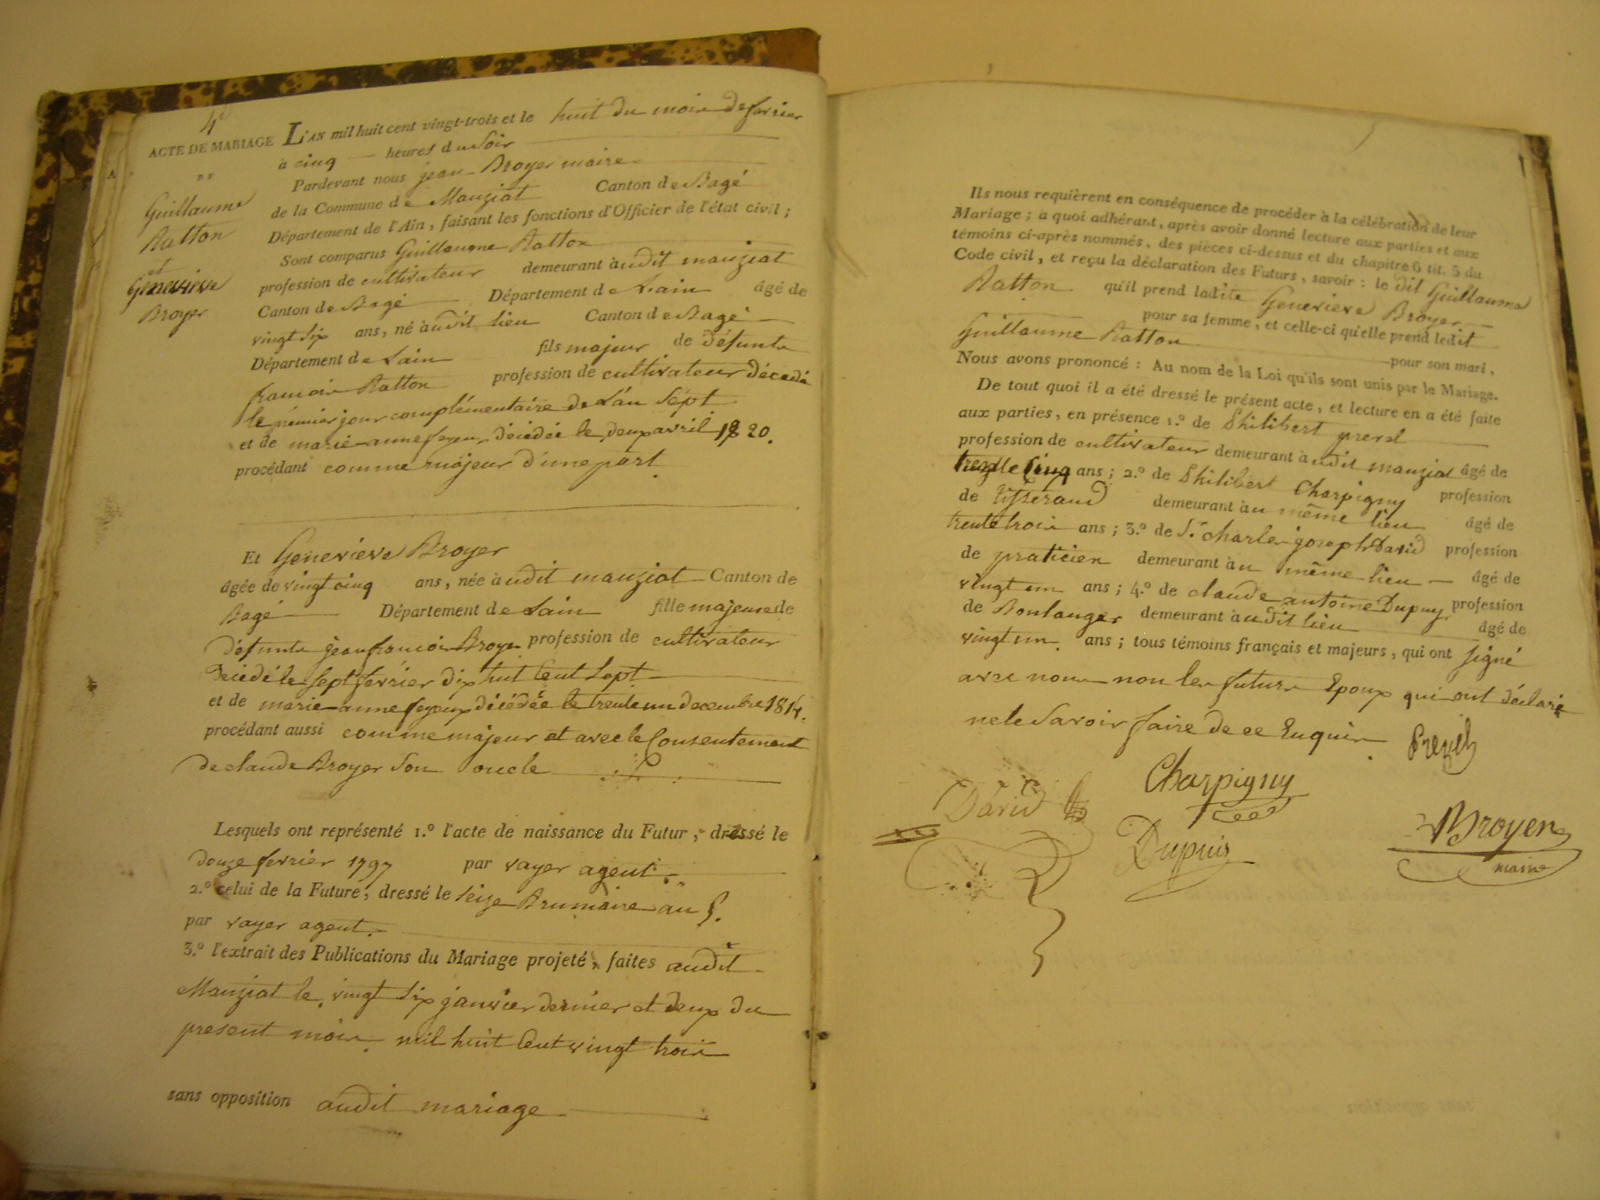 4e
ACTE DE MARIAGE
Guillaume
Ratton
et
Genevieve
Broyer
L'AN mil huit cent vingt-trois et le huit du mois de fevrier
à cinq heures du Soir
Pardevant nous jean Broyer maire
de la Commune de Manziat Canton de Bagé
Département de l'Ain, faisant les fonctions d'Officier de l'état civil;
Sont comparus Guillaume Ratton
profession de cultivateur demeurant àudit manziat
Canton de Bagé Département de Lain âgé de
vingt six ans, né àudit lieu Canton de Bagé
Département de Lain fils majeur de défunts
francois Ratton profession de cultivateur décédé
le premier jour complémentaire de Lan Sept
et de marie anne feyeux décédée le deux avril 1820.
procédant comme majeur d'une part
Et Genevieve Broyer
âgée de vingt cinq ans, née àudit manziat Canton de
Bagé Département de Lain fille majeure de
défunts jean francois Broyer profession de cultivateur
Décédé le Sept fevrier dix huit Cent Sept
et de marie anne feyeux décédée le trente un decembre 1814.
procédant aussi comme majeur et avec le Consentement
de claude Broyer Son oncle
Lesquels ont représenté 1.º l'acte de naissance du Futur, dressé le
douze fevrier 1797 par vayer agent.
2.º celui de la Future, dressé le Seize Brumaire an 6.
par vayer agent.
3.º l'extrait des Publications du Mariage projeté, faites audit
Manziat le vingt Six janvier dernier et deux du
present mois mil huit Cent vingt trois
sans opposition audit mariage
Ils nous requièrent en conséquence de procéder à la célébration de leur
Mariage; à quoi adhérant, après avoir donné lecture aux parties et aux
témoins ci-après nommés, des pièces ci-dessus et du chapitre 6 tit. 5 du
Code civil, et reçu la déclaration des Futurs, savoir: le dit Guillaume
Ratton qu'il prend ladite Genevieve Broyer
pour sa femme, et celle-ci qu'elle prend ledit
Guillaume Ratton pour son mari,
Nous avons prononcé: Au nom de la Loi qu'ils sont unis par le Mariage.
De tout quoi il a été dressé le présent acte, et lecture en a été faite
aux parties, en présence 1.º de Philibert prevel
profession de cultivateur demeurant àudit manziat âgé de
trente Cinq ans; 2.º de Philibert Charpigny profession
de tisserand demeurant àu même lieu âgé de
trente trois ans; 3.º de Sr charle joseph David profession
de praticien demeurant àu même lieu âgé de
vingt un ans; 4.º de claude antoine Dupuy profession
de Boulanger demeurant àudit lieu âgé de
vingt un ans; tous témoins français et majeurs, qui ont signé
avec nous non les futurs Epoux qui ont déclaré
ne le Savoir faire de ce Enquis
Prevel
Charpigny
David
Dupuis
Broyer
maire